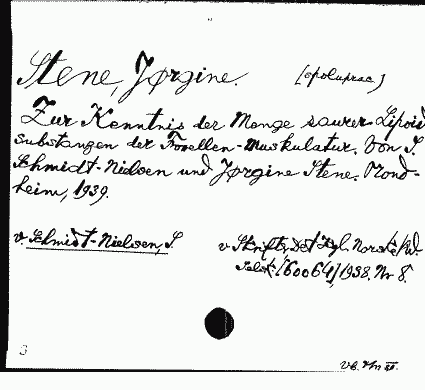 Stene, Jørgine. [spoluprac.]
Zur Kenntnis der Menge saurer Lipoid
substanzen der Forellen-Muskulatur. Von S.
Schmidt-Nielsen und Jørgine Stene. Trond-
heim, 1939.
v. Schmidt-Nielsen, S. v Skrifter, Det Kgl. Norske Vid.
Selsk. [60064] 1938. Nr 8.
3